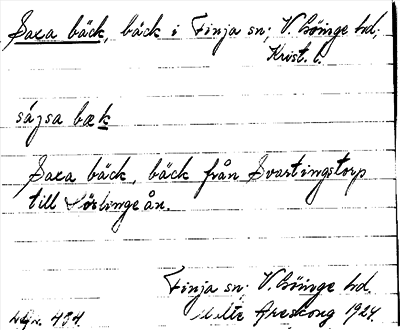 Saxa bäck, bäck i Finja sn; V. Göinge hd,
Krist. l.
ságsa bæk
Saxa bäck, bäck från Svartingstorp
till Hörlinge ån.
Finja sn; V. Göinge hd.
Areskog 1924.
434.